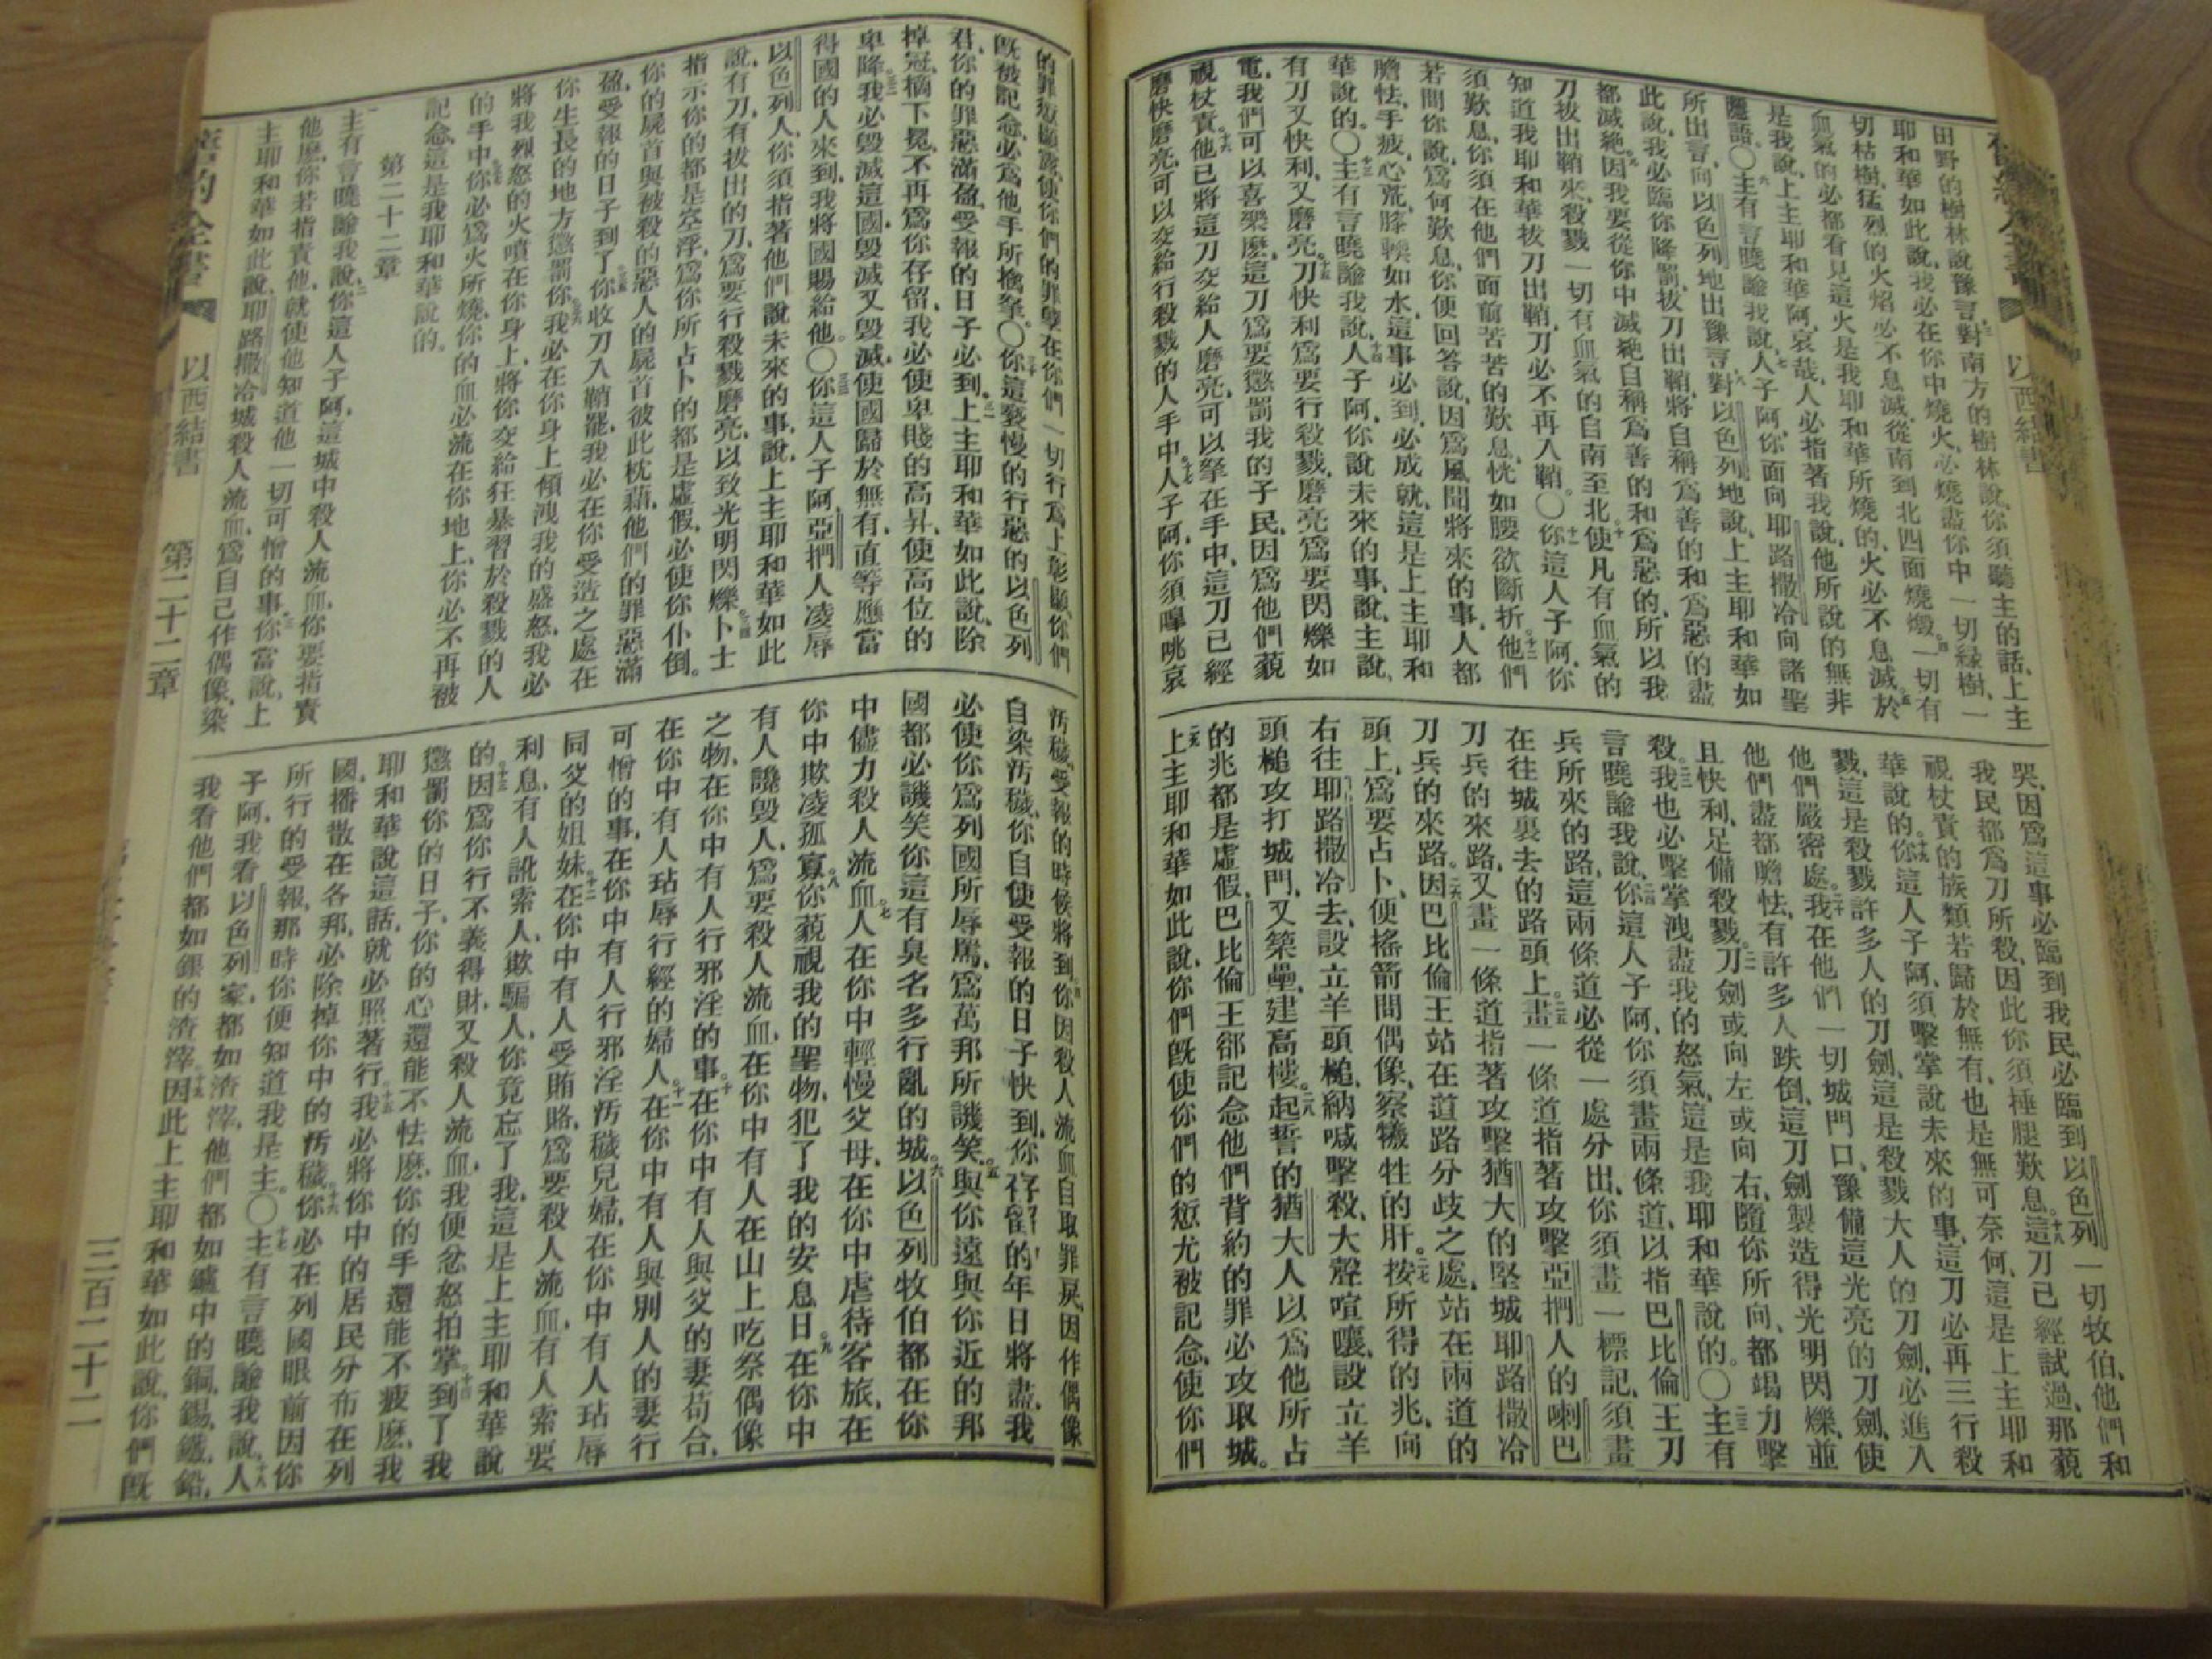 以西結書
田野的樹林說豫言、對南方的樹林說、你須聽主的話、上主
耶和華如此說、我必在你中燒火、必燒盡你中一切綠樹、一
切枯樹、猛烈的火焰必不息滅、從南到北四面燒燬。四一切有
血氣的必都看見這火是我耶和華所燒的、火必不息滅。五於
是我說、上主耶和華阿、哀哉、人必指著我說、他所說的無非
隱語。〇六主有言曉諭我說、七人子阿、你面向耶路撒冷向諸聖
所出言、向以色列地出豫言、八對以色列地說、上主耶和華如
此說、我必臨你降罰、拔刀出鞘、將自稱爲善的和爲惡的盡
都滅絕。九因我要從你中滅絕自稱爲善的和爲惡的、所以我
刀拔出鞘來、殺戮一切有血氣的自南至北、十使凡有血氣的
知道我耶和華拔刀出鞘、刀必不再入鞘。〇十一你這人子阿、你
須歎息、你須在他們面前苦苦的歎息、恍如腰欲斷折。十二他們
若問你說、爲何歎息、你便回答說、因爲風聞將來的事、人都
膽怯、手疲、心荒、膝輭如水、這事必到、必成就、這是上主耶和
華說的。〇十三主有言曉諭我說、十四人子阿、你說未來的事、說、主說、
有刀又快利、又磨亮。十五刀快利爲要行殺戮、磨亮爲要閃爍如
電、我們可以喜樂麽、這刀爲要懲罰我的子民、因爲他們藐
視杖責。十六他已將這刀交給人磨亮、可以拏在手中、這刀已經
磨快磨亮、可以交給行殺戮的人手中。十七人子阿、你須嘷咷哀
哭、因爲這事必臨到我民、必臨到以色列一切牧伯、他們和
我民都爲刀所殺、因此你須捶腿歎息。十八這刀已經試過、那藐
視杖責的族類若歸於無有、也是無可奈何、這是上主耶和
華說的。十九你這人子阿、須擊掌說未來的事、這刀必再三行殺
戮、這是殺戮許多人的刀劍、這是殺戮大人的刀劍、必進入
他們嚴密處。二十我在他們一切城門口、豫備這光亮的刀劍、使
他們盡都膽怯、有許多人跌倒、這刀劍製造得光明閃爍、並
且快利、足備殺戮。二一刀劍或向左或向右、隨你所向、都竭力擊
殺。二二我也必擊掌洩盡我的怒氣、這是我耶和華說的。〇二三主有
言曉諭我說、二四你這人子阿、你須畫兩條道、以指巴比倫王刀
兵所來的路、這兩條道必從一處分出、你須畫一標記、須畫
在往城裏去的路頭上。二五畫一條道指著攻擊亞捫人的喇巴
刀兵的來路、又畫一條道指著攻擊猶大的堅城耶路撒冷
刀兵的來路。二六因巴比倫王站在道路分歧之處、站在兩道的
頭上、爲要占卜、便搖箭問偶像、察犧牲的肝。二七按所得的兆、向
右往耶路撒冷去、設立羊頭槌、吶喊擊殺、大聲喧嚷、設立羊
頭槌攻打城門、又築壘、建高樓。二八起誓的猶大人以爲他所占
的兆都是虛假、巴比倫王卻記念他們背約的罪必攻取城。
二九上主耶和華如此說、你們旣使你們的愆尤被記念、使你們
的罪孽顯露、使你們的罪孽在你們一切行爲上彰顯、你們
旣被記念、必爲他手所擒拏。〇三十你這褻慢的行惡的以色列
君、你的罪惡滿盈、受報的日子必到。三一上主耶和華如此說、除
掉冠、摘下冕、不再爲你存留、我必使卑賤的高昇、使高位的
卑降。三二我必毀滅這國、毀滅又毀滅、使國歸於無有、直等應當
得國的人來到、我將國賜給他。〇三三你這人子阿、亞捫人凌辱
以色列人、你須指著他們說未來的事、說、上主耶和華如此
說、有刀、有拔出的刀、爲要行殺戮磨亮、以致光明閃爍。三四卜士
指示你的都是空浮、爲你所占卜的都是虛假、必使你仆倒。
你的屍首與被殺的惡人的屍首彼此枕藉、他們的罪惡滿
盈、受報的日子到了。三五你收刀入鞘罷、我必在你受造之處在
你生長的地方懲罰你。三六我必在你身上傾洩我的盛怒、我必
將我烈怒的火噴在你身上、將你交給狂暴習於殺戮的人
的手中。三七你必爲火所燒、你的血必流在你地上、你必不再被
記念、這是我耶和華說的。
第二十二章
主有言曉諭我說、二你這人子阿、這城中殺人流血、你要指責
他麽、你若指責他、就使他知道他一切可憎的事。三你當說、上
主耶和華如此說、耶路撒冷城殺人流血、爲自己作偶像、染
汚穢、受報的時候將到。四你因殺人流血自取罪戾、因作偶像
自染汚穢、你自使受報的日子快到、你存留的年日將盡、我
必使你爲列國所辱罵、爲萬邦所譏笑。五與你遠與你近的邦
國都必譏笑你這有臭名多行亂的城。六以色列牧伯都在你
中儘力殺人流血。七人在你中輕慢父母、在你中虐待客旅、在
你中欺凌孤寡。八你藐視我的聖物、犯了我的安息日。九在你中
有人讒毀人、爲要殺人流血、在你中有人在山上吃祭偶像
之物、在你中有人行邪淫的事。十在你中有人與父的妻苟合、
在你中有人玷辱行經的婦人。十一在你中有人與別人的妻行
可憎的事、在你中有人行邪淫汚穢兒婦、在你中有人玷辱
同父的姐妹。十二在你中有人受賄賂、爲要殺人流血、有人索要
利息、有人訛索人、欺騙人、你竟忘了我、這是上主耶和華說
的。十三因爲你行不義得財、又殺人流血、我便忿怒拍掌。十四到了我
懲罰你的日子、你的心還能不怯麽、你的手還能不疲麽、我
耶和華說這話、就必照著行。十五我必將你中的居民分布在列
國、播散在各邦、必除掉你中的汚穢。十六你必在列國眼前因你
所行的受報、那時你便知道我是主。〇十七主有言曉諭我說、十八人
子阿、我看以色列家、都如渣滓、他們都如爐中的銅、錫、鐵、鉛、
我看他們都如銀的渣滓。十九因此上主耶和華如此說、你們旣
以西結書 第二十二章
三百二十二